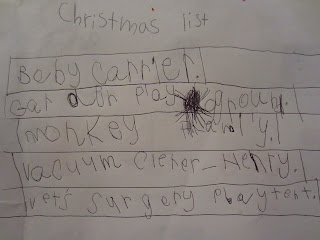 Christmas list
Baby carrier.
Gardon play ground.
monkey family.
vacuum clener_Henry.
vets surgery playtent.